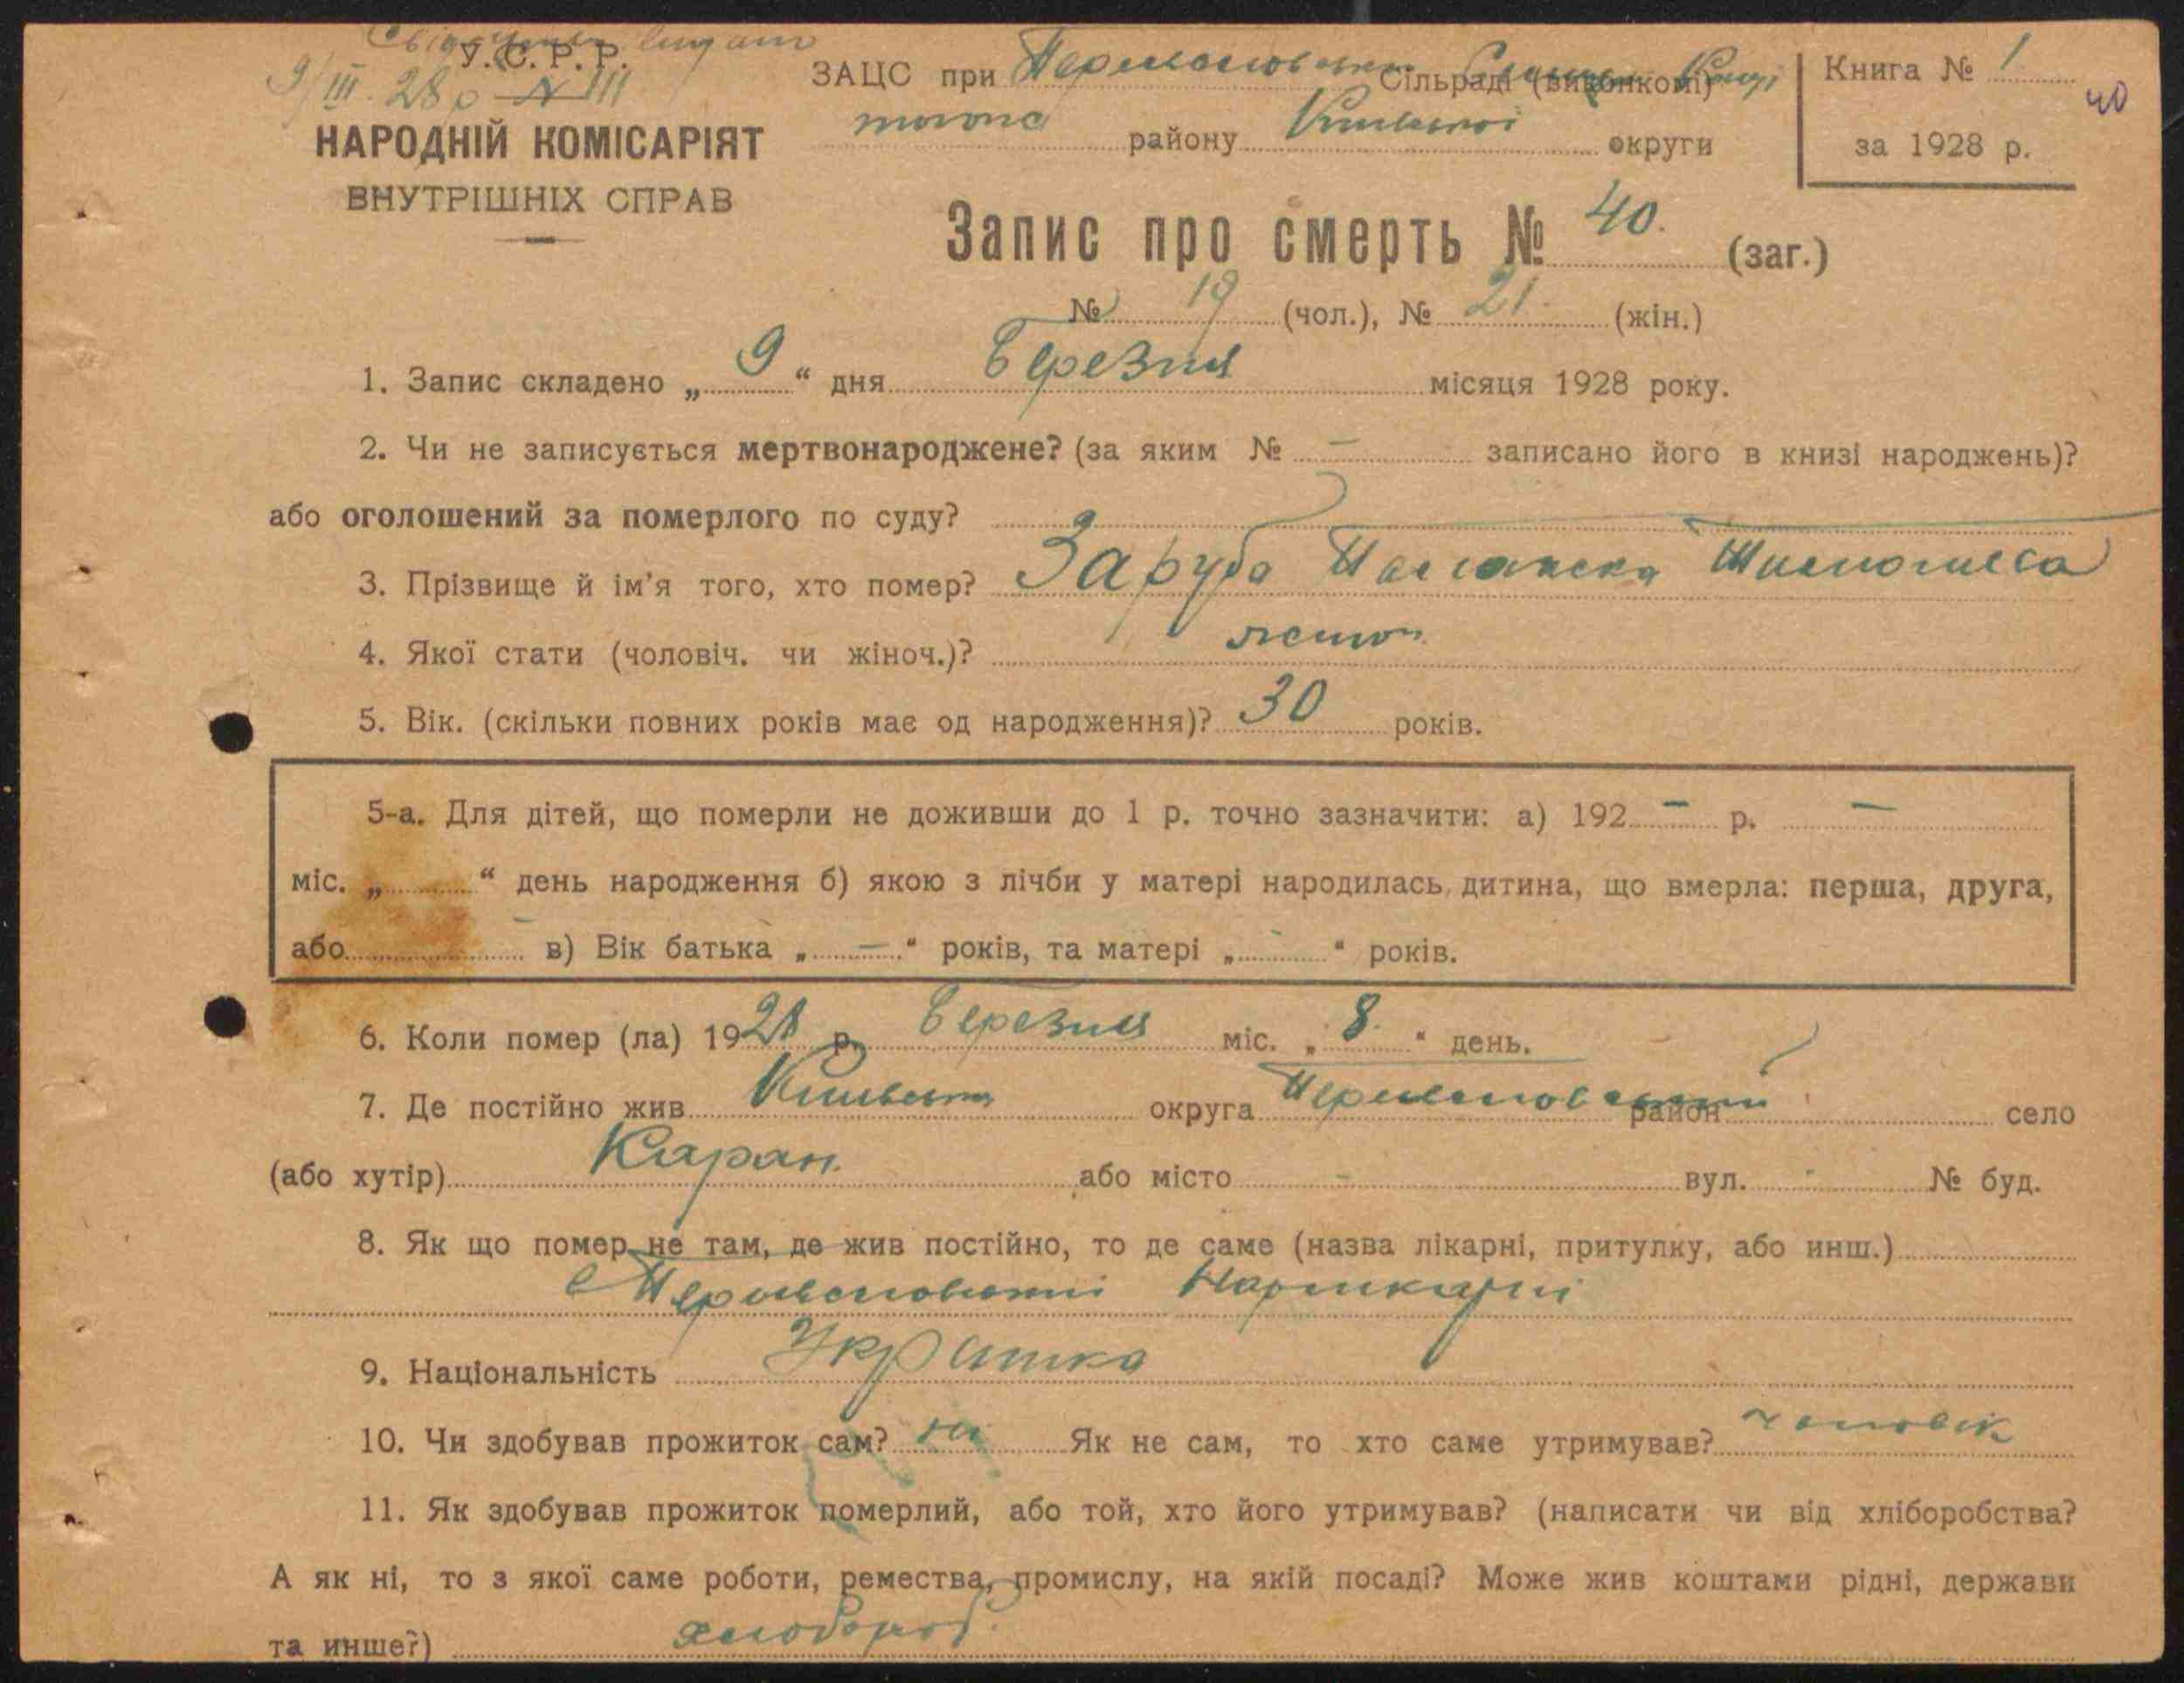 Свідоцтво видано
У.С.Р.Р.
9/III 28 р № 111
НАРОДНІЙ КОМІСАРІЯТ
ВНУТРІШНІХ СПРАВ
ЗАЦС при Переяславськ Сільраді (виконкомі)
того району Київської округи
Книга № 1
за 1928 р.
40
Запис про смерть № 40. (заг.)
№ 19 (чол.), № 21 (жін.)
1. Запис складено „ 9 “ дня Березня місяця 1928 року.
2. Чи не записується мертвонароджене? (за яким № — записано його в книзі народжень)?
або оголошений за померлого по суду?
3. Прізвище й ім'я того, хто помер? Заруба
4. Якої стати (чоловіч. чи жіноч.)? жіноч.
5. Вік. (скільки повних років має од народження)? 30 років.
5-а. Для дітей, що померли не доживши до 1 р. точно зазначити: а) 192 — р. —
міс. „ “ день народження б) якою з лічби у матері народилась дитина, що вмерла: перша, друга,
або — в) Вік батька „ — “ років, та матері „ - “ років.
6. Коли помер (ла) 1928 р. Березня міс. „ 8. “ день.
7. Де постійно жив Київська округа Переяславський район село
(або хутір) Каран. або місто - вул. - № буд.
8. Як що помер не там, де жив постійно, то де саме (назва лікарні, притулку, або инш.)
в Переяславській Нарлікарні
9. Національність Українка
10. Чи здобував прожиток сам? ні Як не сам, то хто саме утримував? чоловік
11. Як здобував прожиток померлий, або той, хто його утримував? (написати чи від хліборобства?
А як ні, то з якої саме роботи, ремества, промислу, на якій посаді? Може жив коштами рідні, держави
та инше?) хлібороб.